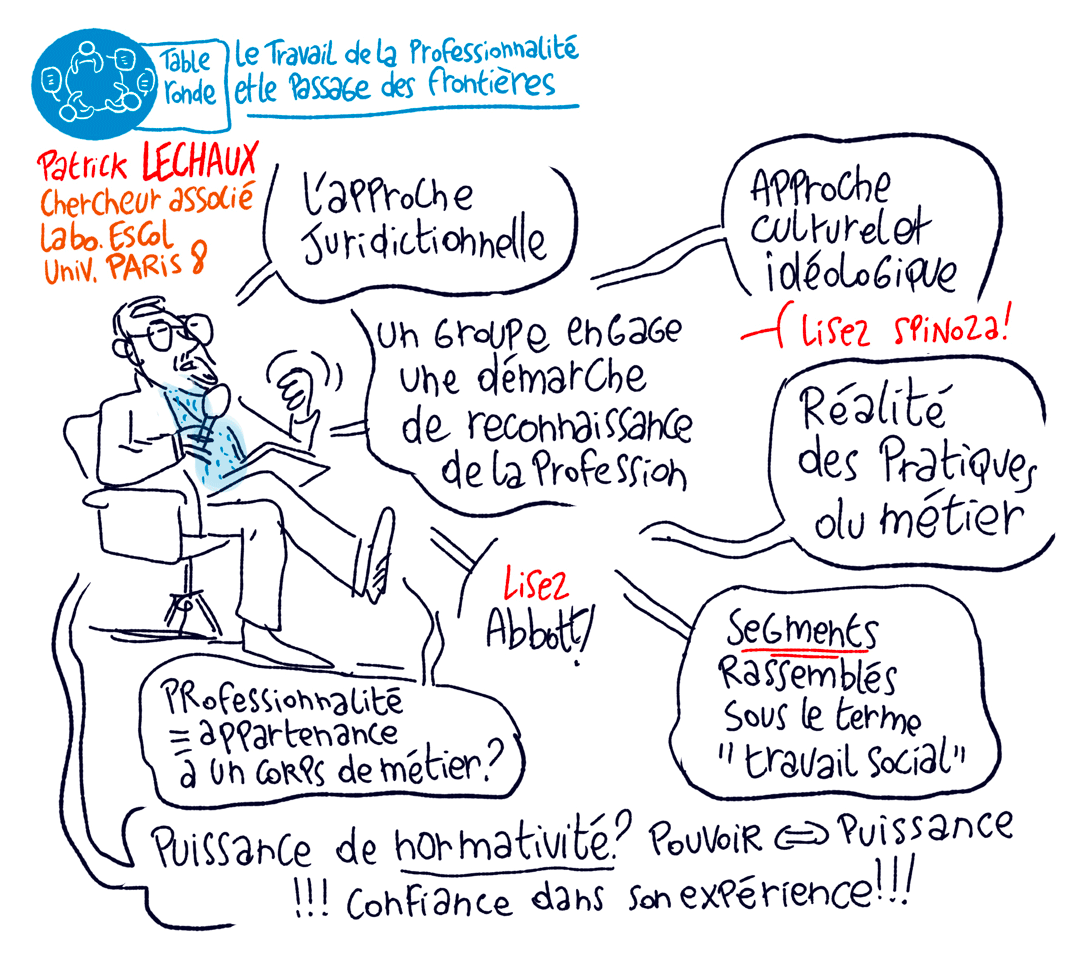 Table
ronde
Le Travail de la Professionnalité
et le Passage des frontières
Patrick LECHAUX
Chercheur associé
Labo. EsCol
Univ. PARIS 8
L'approche
Juridictionnelle
Approche
culturel et
idéologique
Lisez SPiNoza!
Un Groupe engage
une démarche
de reconnaissance
de la Profession
Réalité
des Pratiques
du métier
Lisez
Abbott!
Segments
Rassemblés
sous le terme
"travail social"
PRofessionnalité
= appartenance
à un corps de métier?
Puissance de normativité? Pouvoir ⇔ Puissance
!!! Confiance dans son expérience!!!